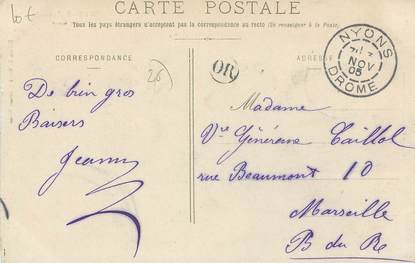 lot
CARTE POSTALE
Tous les pays étrangers n'acceptent pas la correspondance au recto (Se renseigner à la Poste).
CORRESPONDANCE
ADRESSE
NYONS
NOV
05
DROME
OR
26
De bien gros
Baisers
Jeanne
Madame
Vve Générose Taillol
rue Beaumont 10
Marseille
B du R